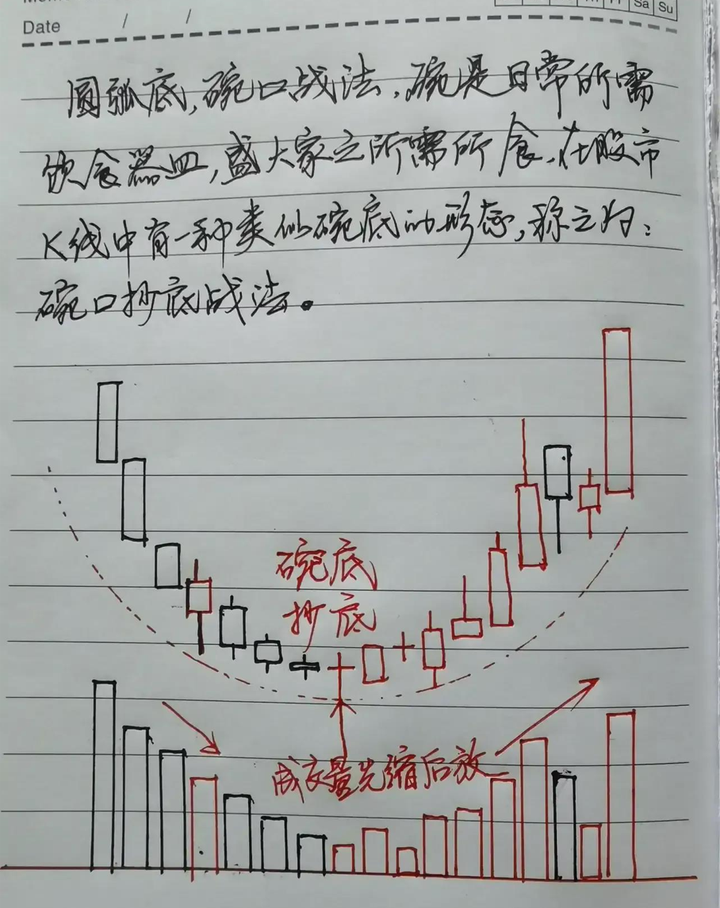 Date / /
Sa Su
圆弧底,碗口战法,碗是日常所需
饮食器皿,盛大家之所需所食,在股市
K线中有一种类似碗底的形态,称之为:
碗口抄底战法。
碗底
抄底
成交量先缩后放